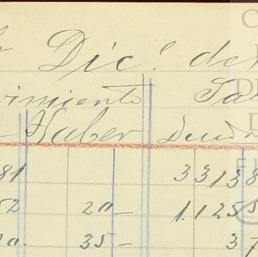 Dic. de
vimiento Sal
Haber Deudo
81 33138
52 20- 1.1255
20. 35- 37